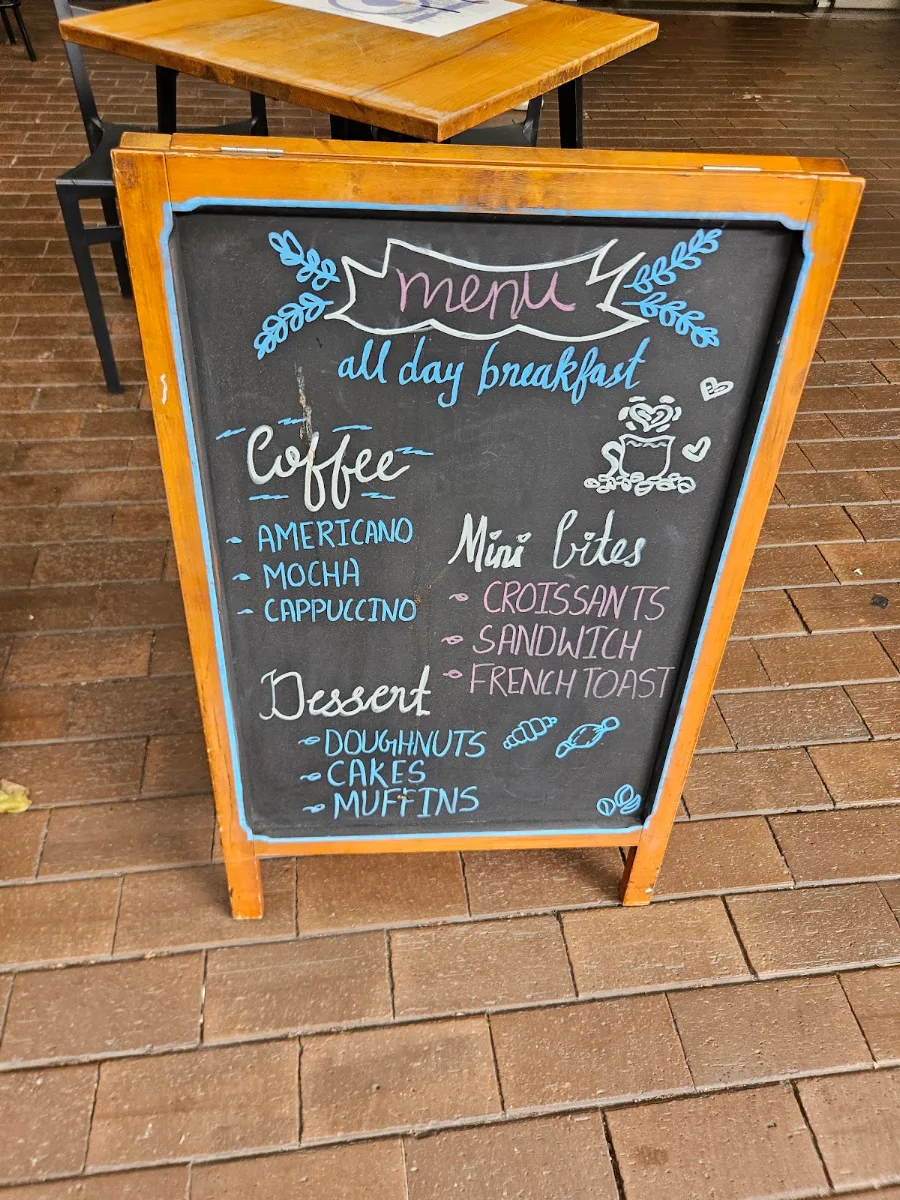 menu
all day breakfast
Coffee
- AMERICANO
- MOCHA
- CAPPUCCINO
Mini bites
- CROISSANTS
- SANDWICH
- FRENCH TOAST
Dessert
- DOUGHNUTS
- CAKES
- MUFFINS